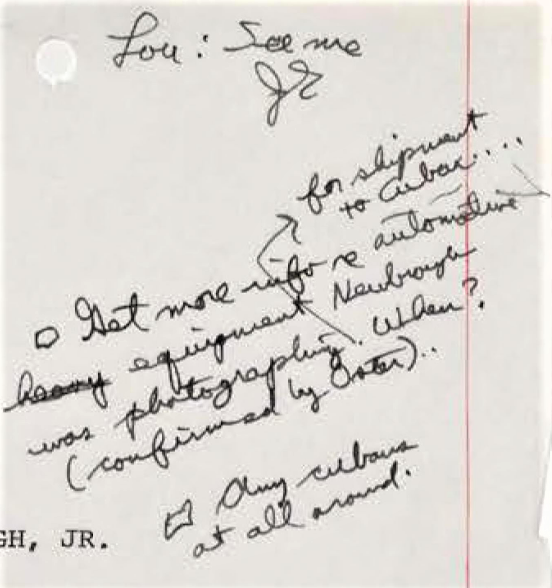 Lou: See me
JG
for shipment
to Cuba....
□ Get more info re automotive
heavy equipment Newbrough
was photographing. When?
(confirmed by Oster)..
□ Any cubans
at all around.
GH, JR.